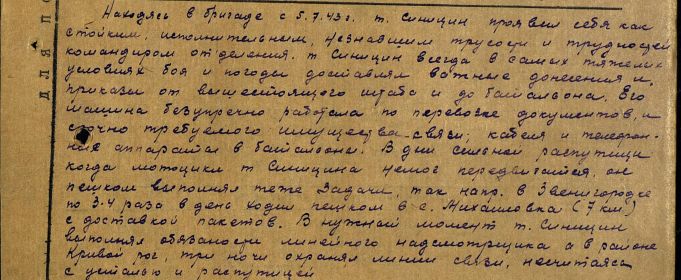 Находясь в бригаде с 5.7.43 г. т. Синицин проявил себя как
стойким, исполнительным, незнавшим трусости и трудностей
командиром отделения. т Синицин всегда в самых тяжелых
условиях боя и погоды доставлял важные донесения и
приказы от вышестоящего штаба и до батальона. Его
машина безупречно работала по перевозке документов, и
срочно требуемого имущества связи, кабеля и телефон-
ных аппаратов в батальоны. В дни сильной распутицы
когда мотоцикл т Синицина немог передвигатся, он
пешком выполнял теже задачи, так напр. в Звенигородке
по 3-4 раза в день ходил пешком в с. Михайловка (7 км)
с доставкой пакетов. В нужный момент т. Синицин
выполнял обязаности линейного надсмотрщика а в районе
Кривой рог, три ночи охранял линии связи, несчитаясь
с усталью и распутицей
ДЛЯ ПО